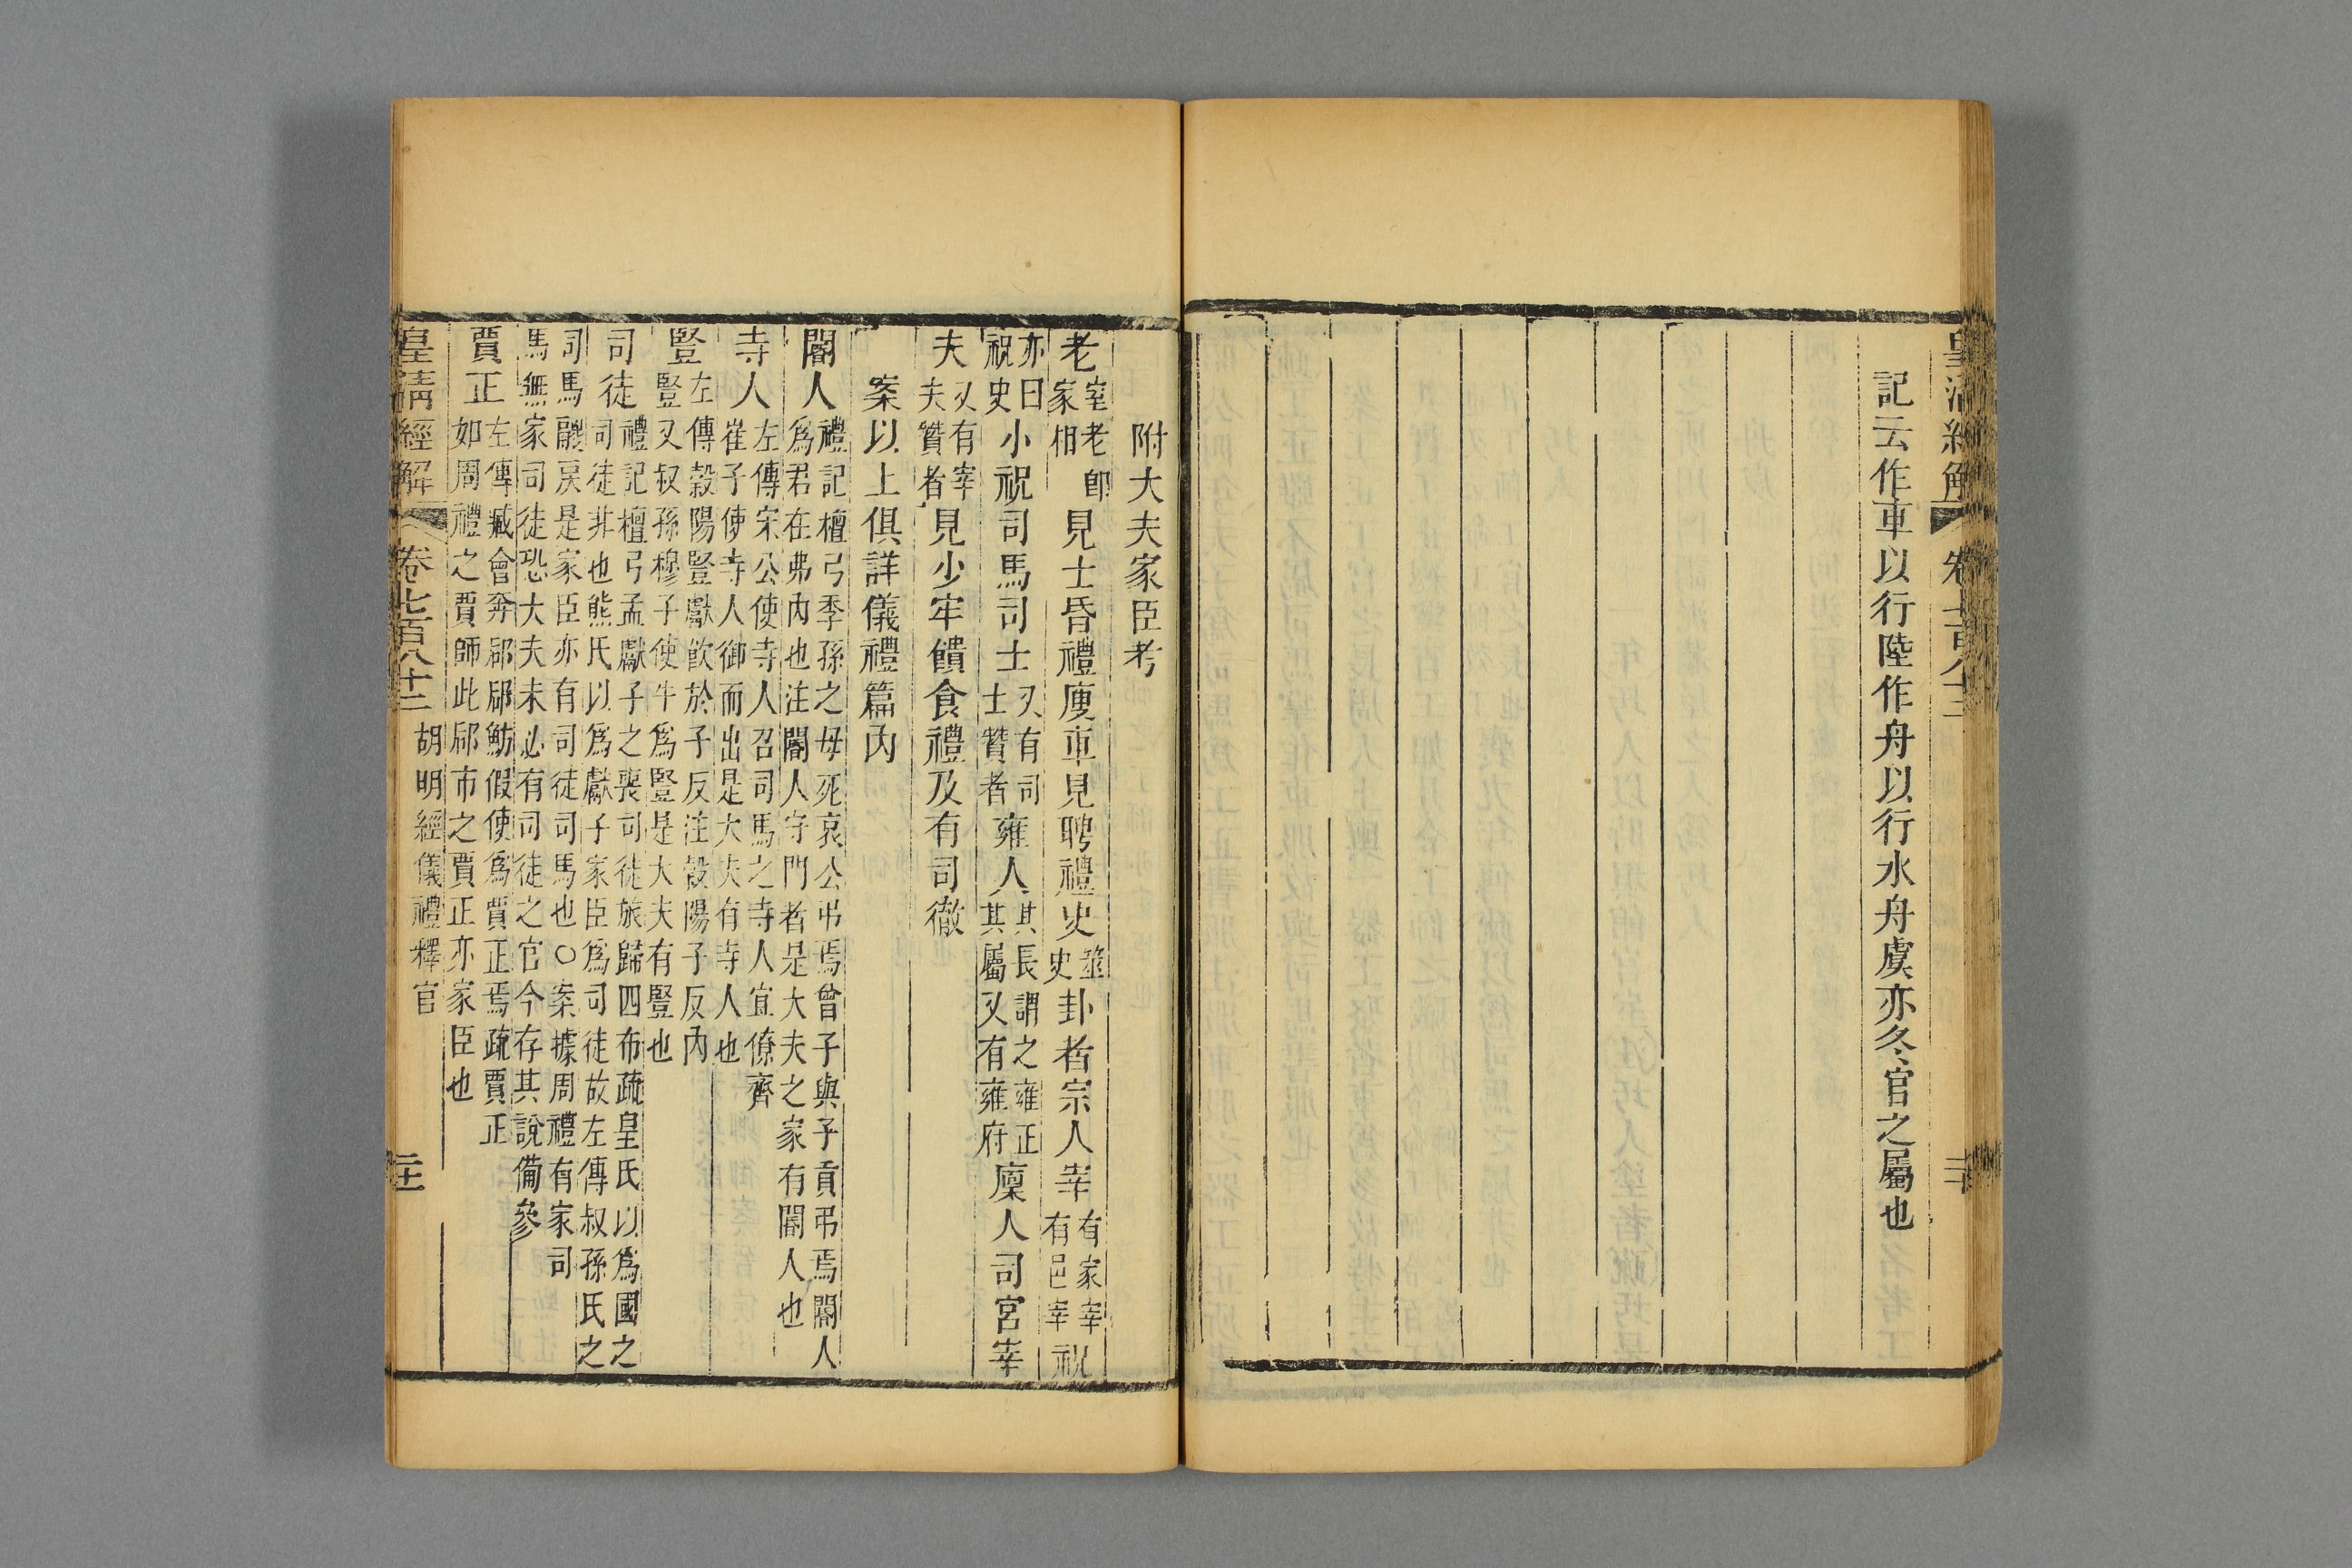 皇清經解
卷七百八十三
記云作車以行陸作舟以行水舟虞亦冬官之屬也
附大夫家臣考
老室老即家相見士昏禮廋車見聘禮史筮史卦者宗人宰有家宰有邑宰祝
亦曰祝史小祝司馬司士又有司士贊者雍人其長謂之雍正其屬又有雍府廩人司宮宰
夫又有宰夫贊者見少牢饋食禮及有司徹
案以上俱詳儀禮篇內
閽人禮記檀弓季孫之母死哀公弔焉曾子與子貢弔焉閽人爲君在弗內也注閽人守門者是大夫之家有閽人也
寺人左傳宋公使寺人召司馬之寺人宜僚齊崔子使寺人御而出是大夫有寺人也
豎左傳穀陽豎獻飲於子反注穀陽子反內豎又叔孫穆子使牛爲豎是大夫有豎也
司徒禮記檀弓孟獻子之喪司徒旅歸四布疏皇氏以爲國之司徒非也熊氏以爲獻子家臣爲司徒故左傳叔孫氏之
司馬鬷戾是家臣亦有司徒司馬也○案據周禮有家司馬無家司徒恐大夫未必有司徒之官今存其說備參
賈正左傳臧會奔郈郈魴假使爲賈正焉疏賈正如周禮之賈師此郈市之賈正亦家臣也
皇清經解
卷七百八十三
胡明經儀禮釋官